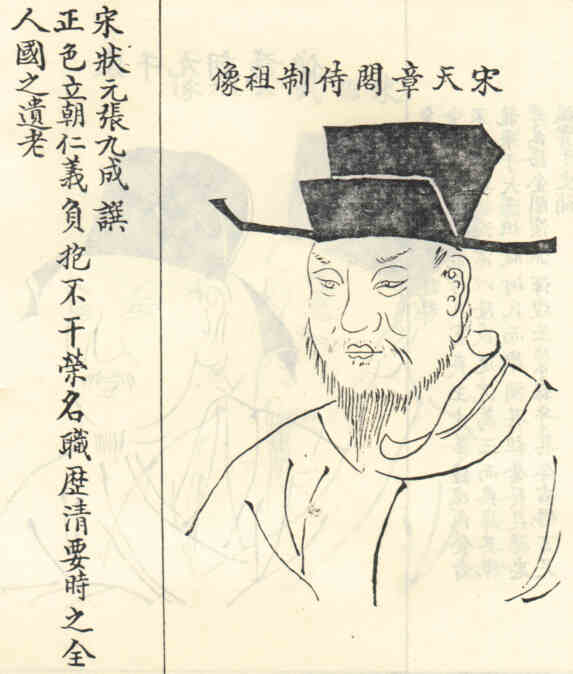 宋天章閣侍制祖像
宋狀元張九成譔
正色立朝仁義負抱不干榮名職歴清要時之全
人國之遺老